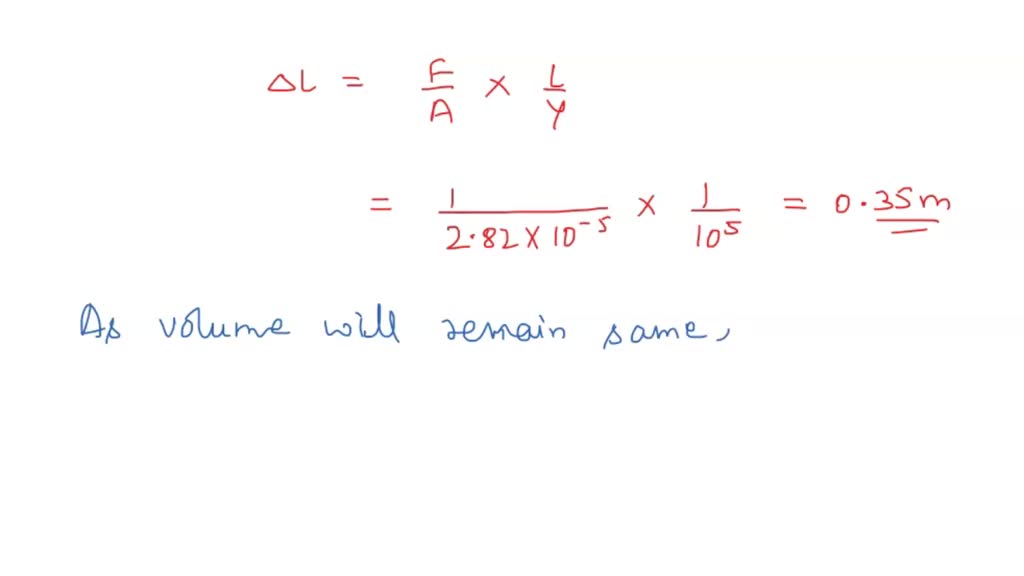 ΔL = F/A × L/Y
= 1/(2.82 × 10⁻⁵) × 1/10⁵ = 0.35m
As volume will remain same,